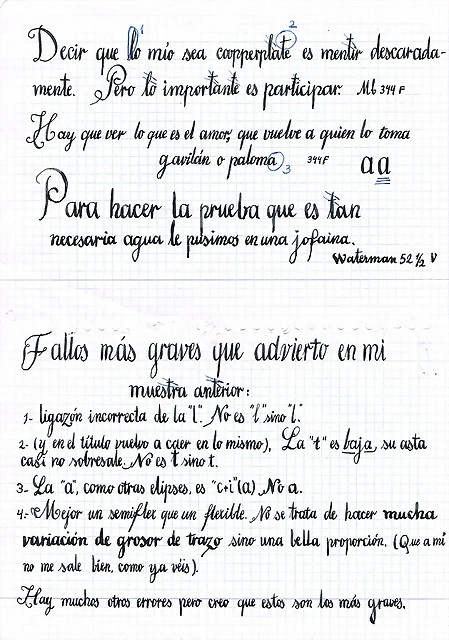 Decir que lo mío sea copperplate es mentir descarada-
mente. Pero lo importante es participar. Mb 344 F
Hay que ver lo que es el amor, que vuelve a quien lo toma
gavilán o paloma 344 F aa
Para hacer la prueba que es tan
necesaria agua le pusimos en una jofaina.
Waterman 52 ½ V
Fallos más graves que advierto en mi
muestra anterior:
1- ligazón incorrecta de la "l". No es "l" sino "l".
2- (y en el título vuelvo a caer en lo mismo). La "t" es baja, su asta
casi no sobresale. No es t sino t.
3- La "a", como otras elipses, es "c+i" (a). No a.
4- Mejor un semiflex que un flexible. No se trata de hacer mucha
variación de grosor de trazo sino una bella proporción. (Que a mí
no me sale bien, como ya véis).
Hay muchos otros errores pero creo que estos son los más graves.